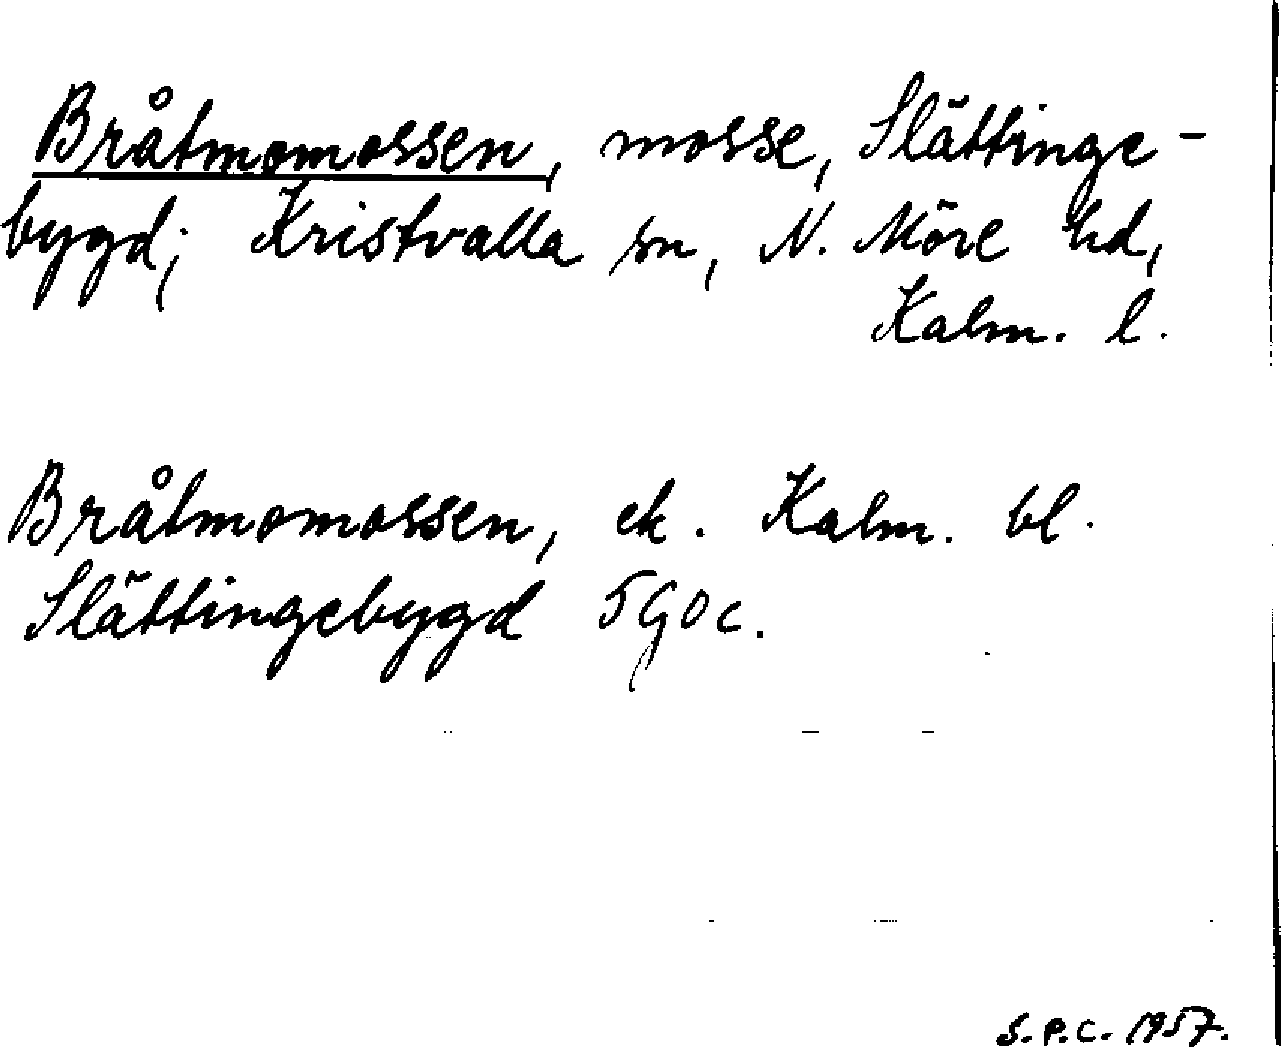 Bråtmomossen, mosse, Slättinge-
bygd; Kristvalla sn, N. Möre hd,
Kalm. l.
Bråtmomossen, ek. Kalm. bl.
Slättingebygd 5G0c.
S.P.C. 1957.